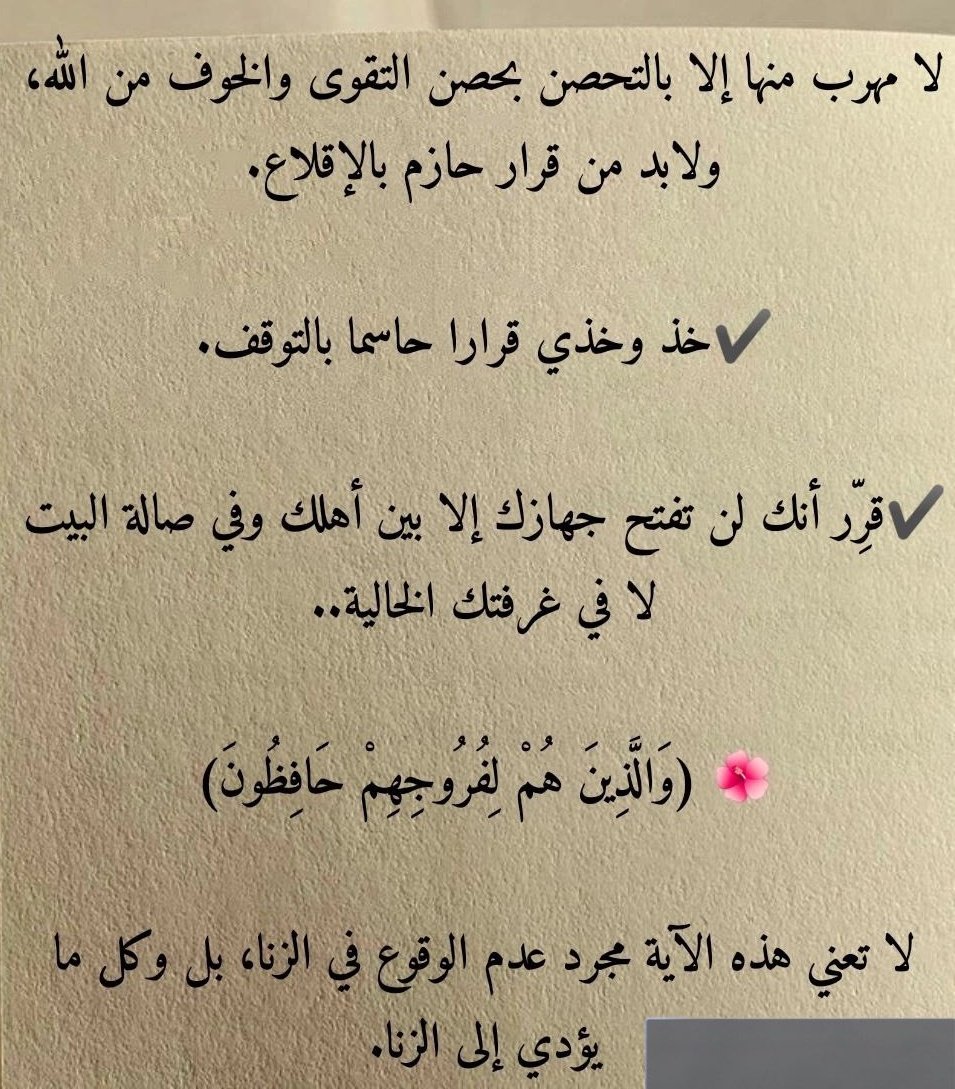 لا مهرب منها إلا بالتحصن بحصن التقوى والخوف من الله،
ولابد من قرار حازم بالإقلاع.
✔خذ وخذي قرارا حاسما بالتوقف.
✔قرِّر أنك لن تفتح جهازك إلا بين أهلك وفي صالة البيت
لا في غرفتك الخالية..
🌺 (وَالَّذِينَ هُمْ لِفُرُوجِهِمْ حَافِظُونَ)
لا تعني هذه الآية مجرد عدم الوقوع في الزنا، بل وكل ما
يؤدي إلى الزنا.